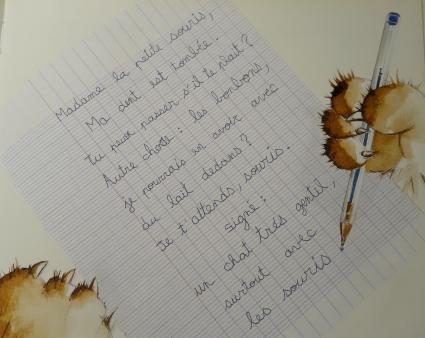 Madame la petite souris,
Ma dent est tombée.
Tu peux passer s'il te plaît?
Autre chose : les bonbons,
je pourrais en avoir avec
du lait dedans?
Je t'attends, souris.
Signé :
un chat très gentil,
surtout avec
les souris